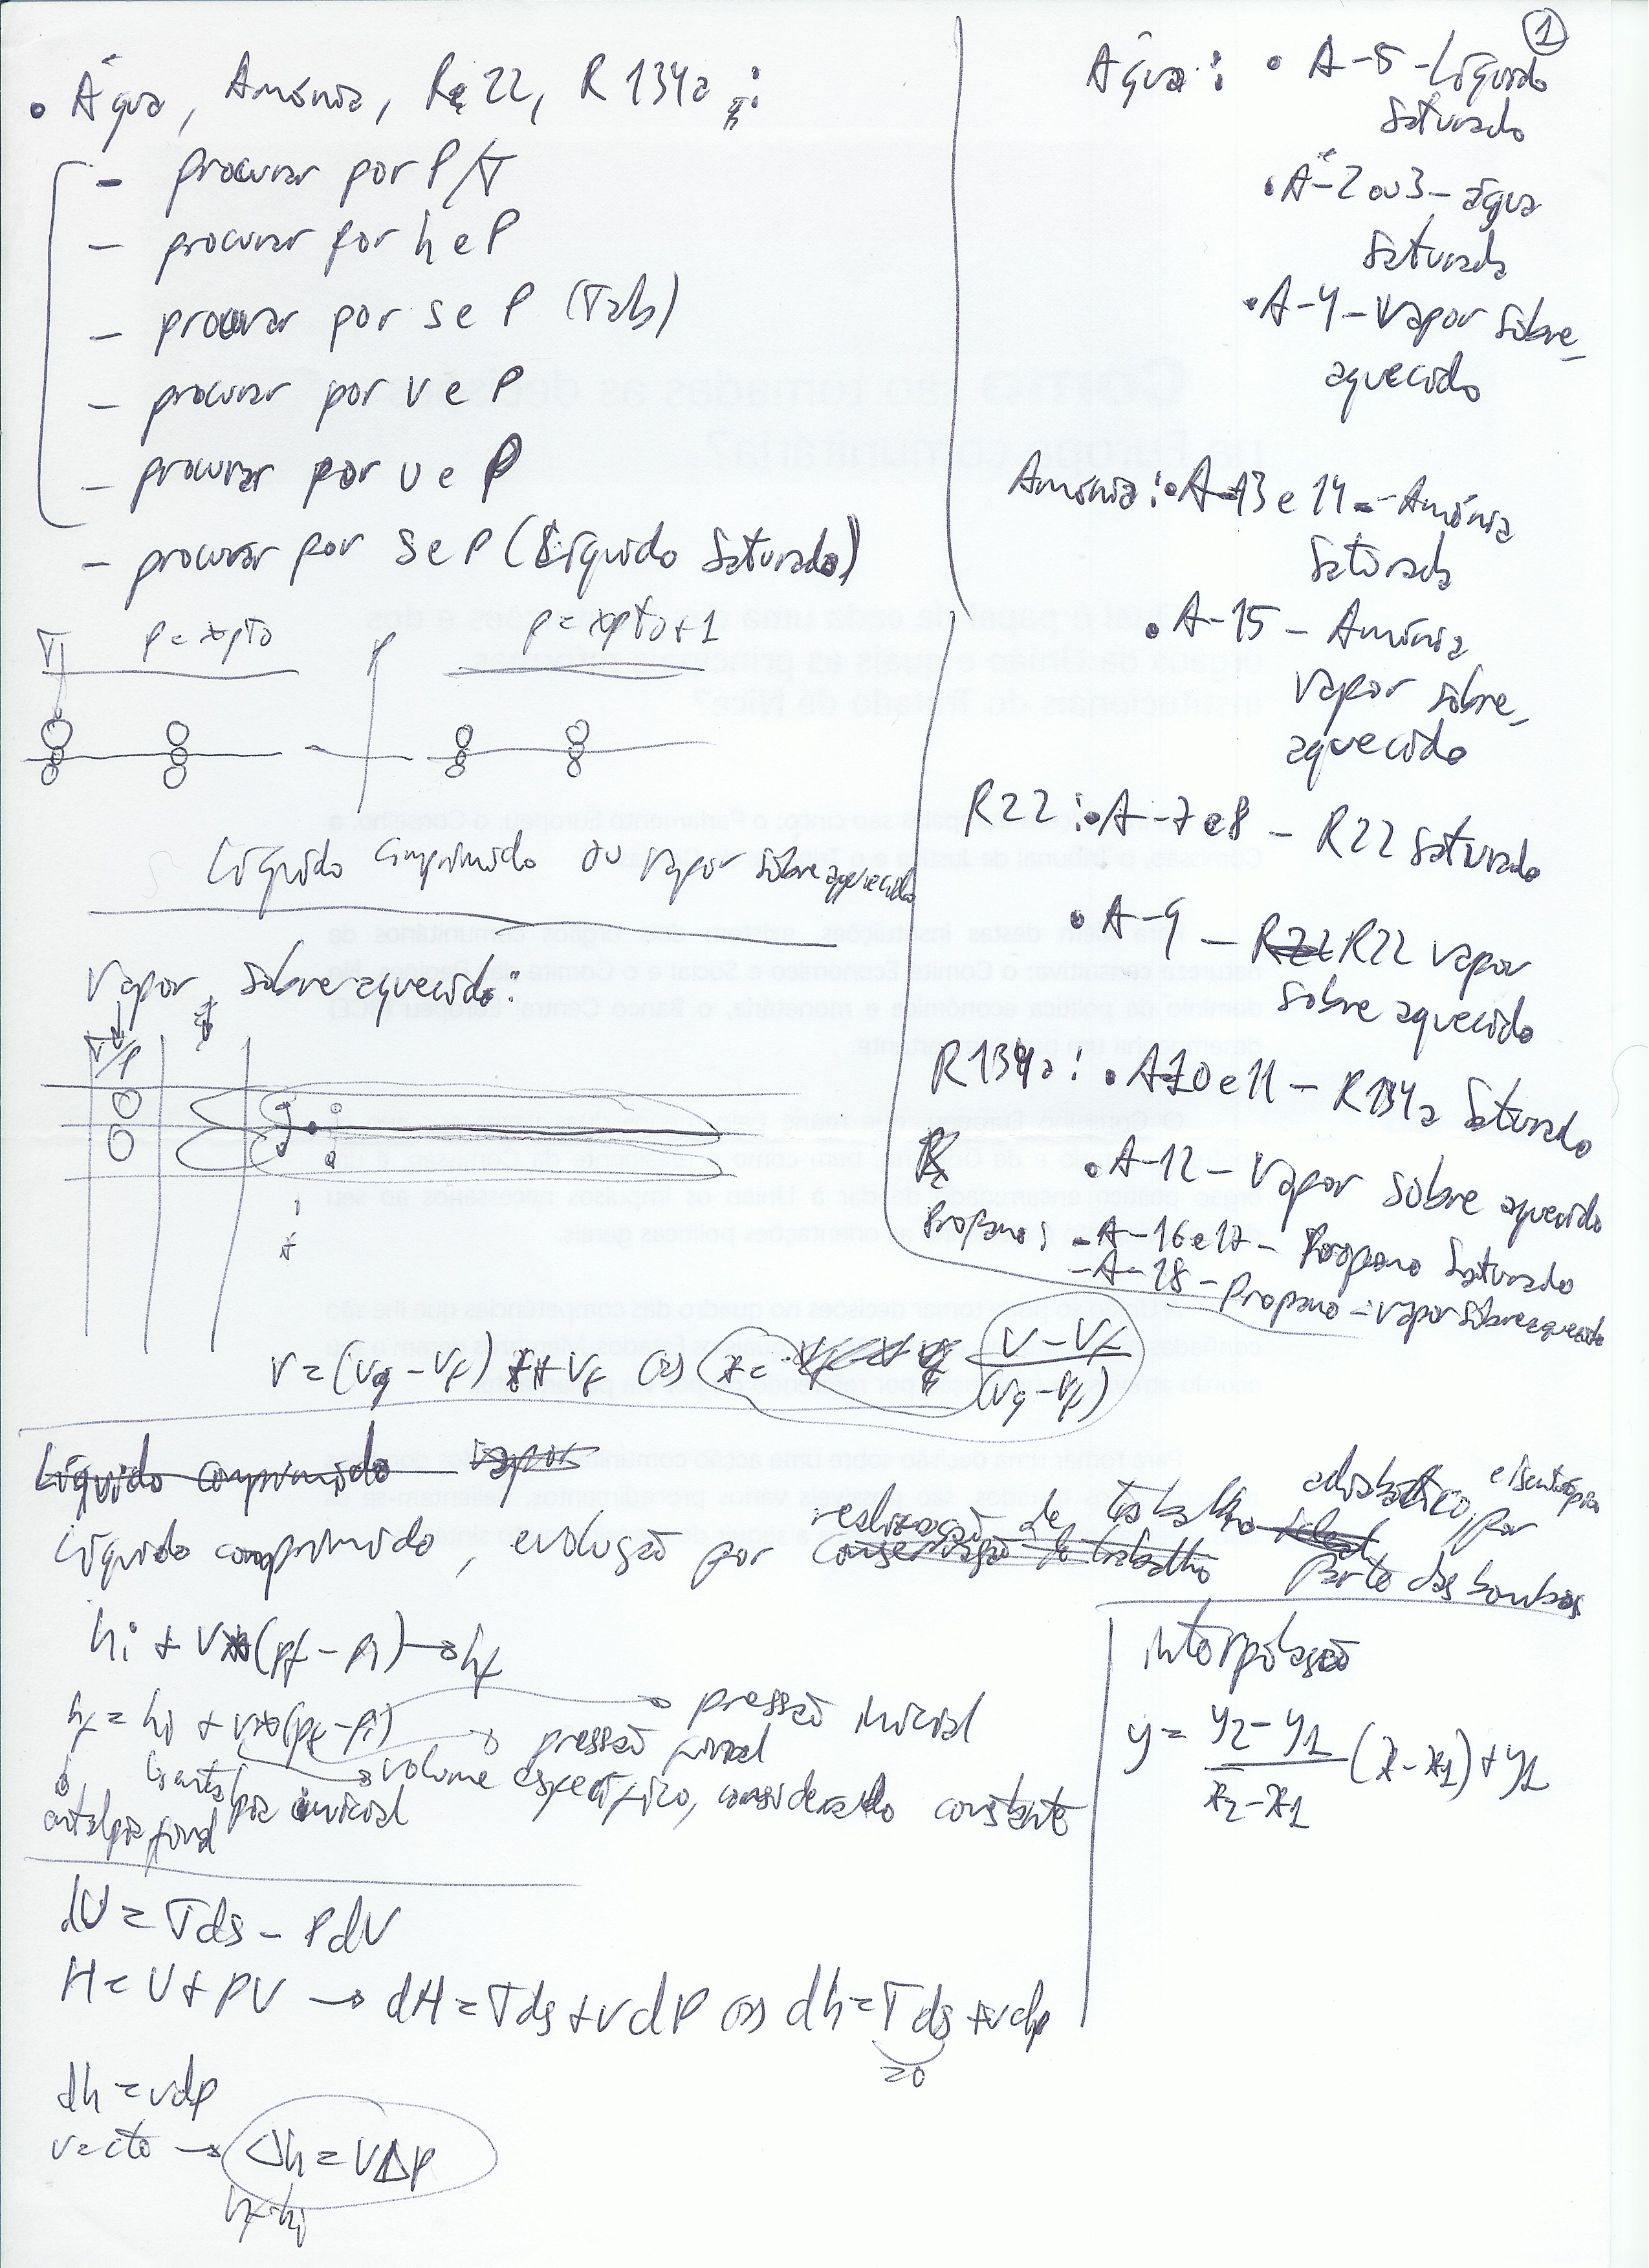 • Água, Amónia, R22, R134a :
- procurar por P/T
- procurar por h e P
- procurar por s e P (Tab)
- procurar por v e P
- procurar por u e P
- procurar por s e P (Líquido Saturado)
T P = xpto P P = xpto+1
Líquido comprimido ou vapor sobreaquecido
Vapor sobreaquecido:
T/P
v = (vg - vf) x + vf ⇔ x = (v - vf)/(vg - vf)
①
Água: • A-5 - Líquido
Saturado
• A-2 ou 3 - água
Saturada
• A-4 - Vapor sobre-
aquecido
Amónia: • A-13 e 14 - Amónia
Saturada
• A-15 - Amónia
vapor sobre-
aquecido
R22: • A-7 e 8 - R22 saturado
• A-9 - R22 R22 vapor
sobre aquecido
R134a: • A10 e 11 - R134a Saturado
• A-12 - Vapor sobre aquecido
Propano: - A-16 e 17 - Propano Saturado
- A-18 - Propano - vapor sobreaquecido
Líquido comprimido vapor
realização de trabalho adiabático, e isentrópico por
Líquido comprimido, evolução por conservação do trabalho parte das bombas
hi + v*(pf - pi) → hf
hf = hi + v*(pf - pi)
pressão inicial
pressão final
volume específico, considerado constante
entalpia inicial
entalpia final
interpolação
y = (y2 - y1)/(x2 - x1) (x - x1) + y1
dU = Tds - PdV
H = U + PV → dH = Tds + vdP ⇔ dh = Tds + vdp
=0
dh = vdp
v = cte → Δh = VΔP
hf-hi